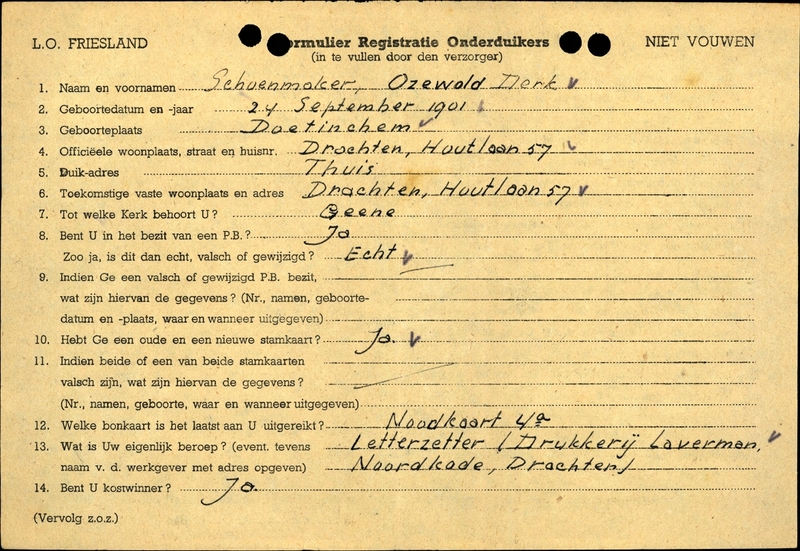 L.O. FRIESLAND
ormulier Registratie Onderduikers
NIET VOUWEN
(in te vullen door den verzorger)
1. Naam en voornamen Schoenmaker, Ozewold Derk
2. Geboortedatum en -jaar 24 September 1901
3. Geboorteplaats Doetinchem
4. Officiëele woonplaats, straat en huisnr. Drachten, Houtlaan 57
5. Duik-adres Thuis
6. Toekomstige vaste woonplaats en adres Drachten, Houtlaan 57
7. Tot welke Kerk behoort U? Geene
8. Bent U in het bezit van een P.B.? Ja
Zoo ja, is dit dan echt, valsch of gewijzigd? Echt
9. Indien Ge een valsch of gewijzigd P.B. bezit,
wat zijn hiervan de gegevens? (Nr., namen, geboorte-
datum en -plaats, waar en wanneer uitgegeven)
10. Hebt Ge een oude en een nieuwe stamkaart? Ja.
11. Indien beide of een van beide stamkaarten
valsch zijn, wat zijn hiervan de gegevens?
(Nr., namen, geboorte, waar en wanneer uitgegeven)
12. Welke bonkaart is het laatst aan U uitgereikt? Noodkaart 4a
13. Wat is Uw eigenlijk beroep? (event. tevens Letterzetter (Drukkerij Laverman,
naam v. d. werkgever met adres opgeven) Noordkade, Drachten)
14. Bent U kostwinner? Ja
(Vervolg z.o.z.)